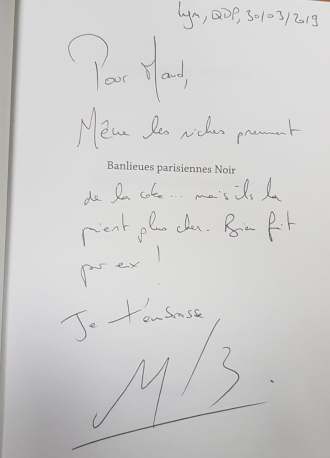 Lyon, QDP, 30/03/2019
Pour Maud,
Même les riches prennent
Banlieues parisiennes Noir
de la coke... mais ils la
paient plus cher. Bien fait
pour eux !
Je t'embrasse